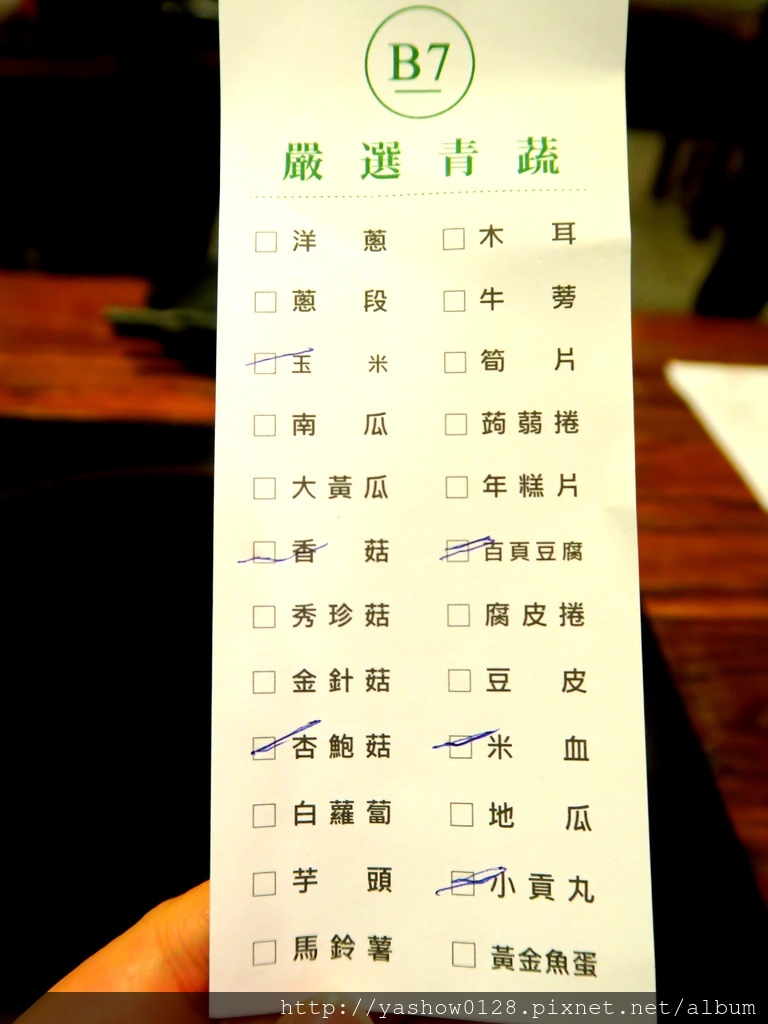 B7
嚴選青蔬
□ 洋蔥 □ 木耳
□ 蔥段 □ 牛蒡
□ 玉米 □ 筍片
□ 南瓜 □ 蒟蒻捲
□ 大黃瓜 □ 年糕片
□ 香菇 □ 百頁豆腐
□ 秀珍菇 □ 腐皮捲
□ 金針菇 □ 豆皮
□ 杏鮑菇 □ 米血
□ 白蘿蔔 □ 地瓜
□ 芋頭 □ 小貢丸
□ 馬鈴薯 □ 黃金魚蛋
http://yashow0128.pixnet.net/album